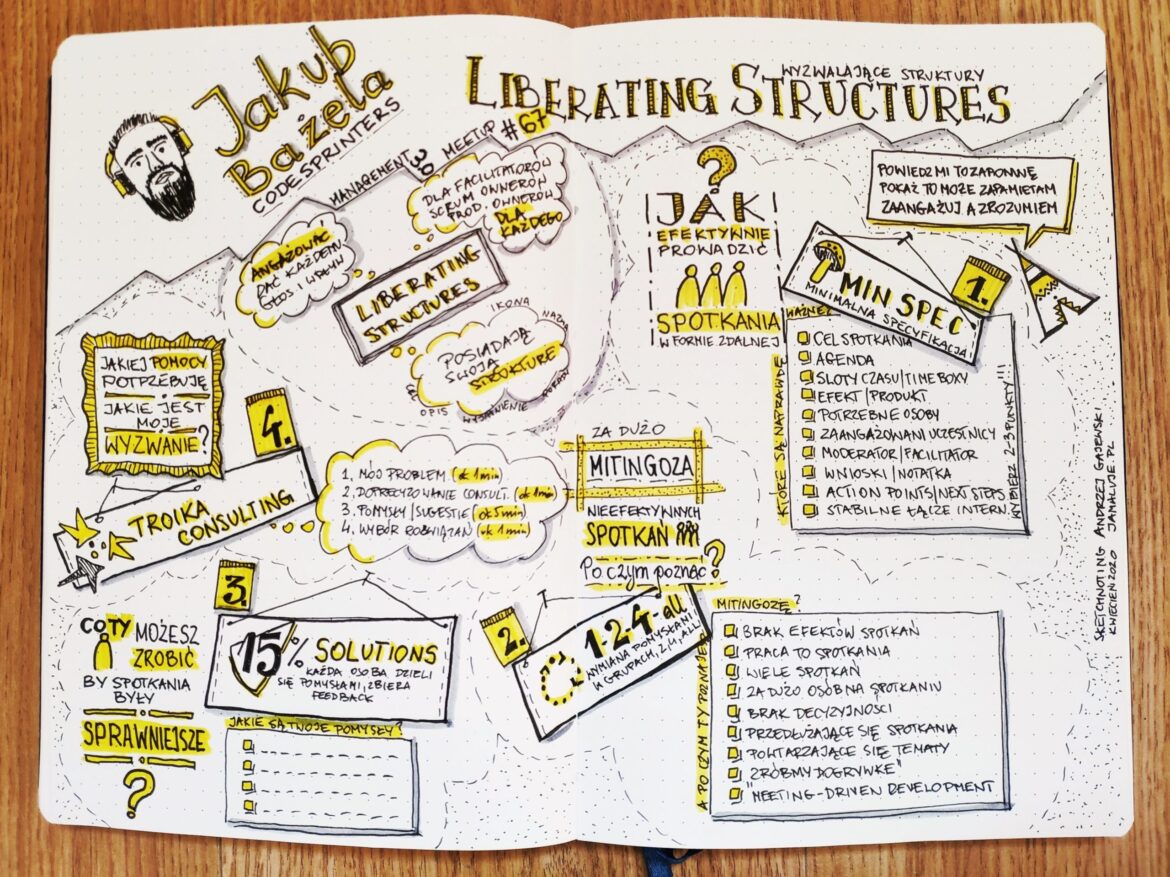 Jakub
Bażela
CODESPRINTERS
MANAGEMENT 3.0 MEETUP #67
LIBERATING STRUCTURES
WYZWALAJĄCE STRUKTURY
ANGAŻOWAĆ
DAĆ KAŻDEMU
GŁOS I WPŁYW
DLA FACILITATORÓW
SCRUM OWNERÓW
PROD. OWNERÓW
DLA
KAŻDEGO
LIBERATING
STRUCTURES
POSIADAJĄ
SWOJĄ
STRUKTURĘ
IKONA
NAZWA
CEL
OPIS
?
JAK
EFEKTYWNIE
PROWADZIĆ
SPOTKANIA
W FORMIE ZDALNEJ
POWIEDZ MI TO ZAPOMNĘ
POKAŻ TO MOŻE ZAPAMIĘTAM
ZAANGAŻUJ A ZROZUMIEM
1.
MIN SPEC
MINIMALNA SPECYFIKACJA
KTÓRE SĄ NAPRAWDĘ
WAŻNE?
CEL SPOTKANIA
AGENDA
SLOTY CZASU/TIMEBOXY
EFEKT/PRODUKT
POTRZEBNE OSOBY
ZAANGAŻOWANI UCZESTNICY
MODERATOR/FACILITATOR
WNIOSKI/NOTATKA
ACTION POINTS/NEXT STEPS
STABILNE ŁĄCZE INTERN.
WYBIERZ 2-3 PUNKTY!!!
ZA DUŻO
MITINGOZA
NIEEFEKTYWNYCH
SPOTKAŃ
Po czym poznać?
2.
1-2-4-all
WYMIANA POMYSŁAMI
W GRUPACH, 2, 4, ALL
A PO CZYM TY POZNAJESZ
MITINGOZĘ?
BRAK EFEKTÓW SPOTKAŃ
PRACA TO SPOTKANIA
WIELE SPOTKAŃ
ZA DUŻO OSÓB NA SPOTKANIU
BRAK DECYZYJNOŚCI
PRZEDŁUŻAJĄCE SIĘ SPOTKANIA
POWTARZAJĄCE SIĘ TEMATY
"ZRÓBMY DOGRYWKĘ"
"MEETING-DRIVEN DEVELOPMENT
3.
15% SOLUTIONS
KAŻDA OSOBA DZIELI
SIĘ POMYSŁAMI, ZBIERA
FEEDBACK
CO TY MOŻESZ
ZROBIĆ
BY SPOTKANIA
BYŁY
SPRAWNIEJSZE
?
JAKIE SĄ TWOJE POMYSŁY?
4.
TROIKA
CONSULTING
JAKIEJ POMOCY
POTRZEBUJĘ
JAKIE JEST
MOJE
WYZWANIE?
1. MÓJ PROBLEM (ok 1 min)
2. DOPRECYZOWANIE CONSULT. (ok 1 min)
3. POMYSŁY/SUGESTIE (ok 5 min)
4. WYBÓR ROZWIĄZAŃ (ok 1 min)
SKETCHNOTING ANDRZEJ GAJEWSKI
KWIECIEŃ 2020 JAMALUJE.PL